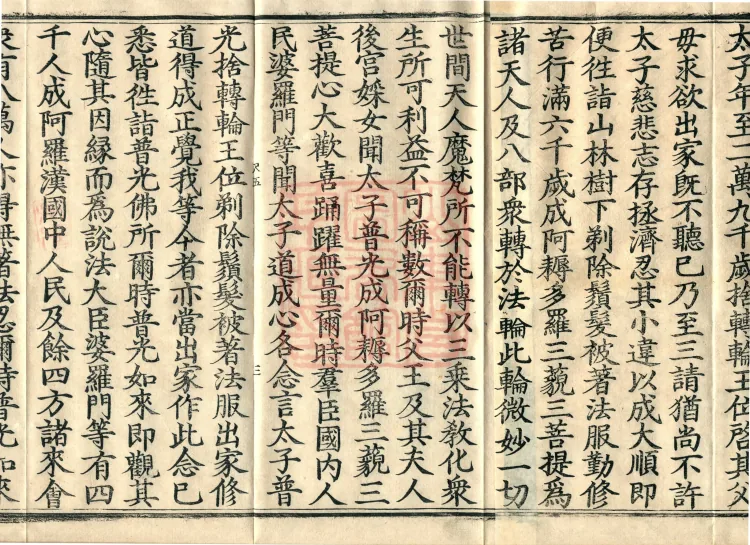 太子年至二萬九千歲捨轉輪王位啓其父
毋求欲出家旣不聽已乃至三請猶尚不許
太子慈悲志存拯濟忍其小違以成大順即
便徃詣山林樹下剃除鬚髮被著法服勤修
苦行滿六千歲成阿耨多羅三藐三菩提爲
諸天人及八部衆轉於法輪此輪微妙一切
世間天人魔梵所不能轉以三乘法教化衆
生所可利益不可稱數爾時父王及其夫人
後宫婇女聞太子普光成阿耨多羅三藐三
菩提心大歡喜踊躍無量爾時羣臣國内人
民婆羅門等聞太子道成心各念言太子普
光捨轉輪王位剃除鬚髮被著法服出家修
道得成正覺我等今者亦當出家作此念已
悉皆徃詣普光佛所爾時普光如來即觀其
心隨其因緣而爲說法大臣婆羅門等有四
千人成阿羅漢國中人民及餘四方諸來會
衆有八萬人亦得無著法忍爾時普光如來